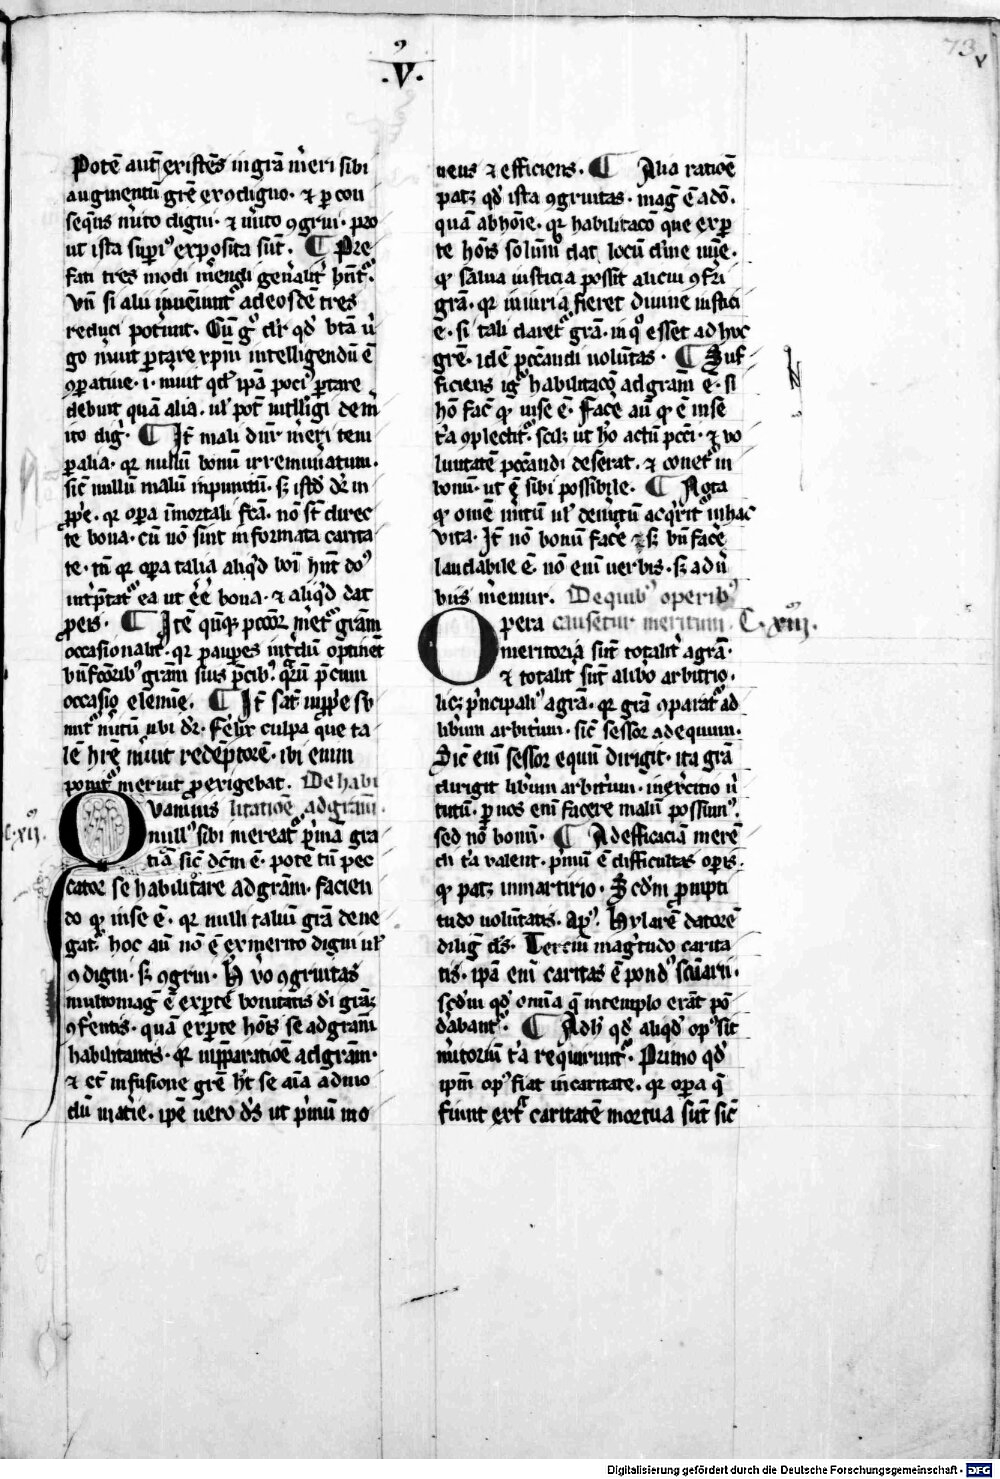 .V.
73
Potē aut̄ existēs in grā m̄eri sibi
augmentū grē ex ꝯdigno · ⁊ ꝑ con
seq̄ns m̄ito digni · ⁊ m̄ito ꝯgrui · pro
ut ista suꝑiꝰ exposita sūt . ¶ Pre
fati tres modi m̄endi gen̄alit̄ hn̄t᷑ .
Vn̄ si alii inveniūt᷑ ad eosdē tres
reduci pot̄unt . Cū gͦ dr̄ qd̓ btā v̄
go m̄uit portare xp̄m intelligendū ē
ꝯparative · i · m̄uit qd̓ ip̄a pociꝰ portare
debuit quā alia . ul̓ pot̄ intll̓igi de m̄
ito dig̓ . ¶ It̄ mali dn̄r m̄eri tem
ꝑalia · qꝛ nullū bonū irremuniatum ·
sic̄ nullū malū inpunitū · sꝫ istd̓ dr̄ in
ꝓpͥe · qꝛ oꝑa īmortali fcā · nō st̄ direc
te bona · cū nō sint informata carita
te · tn̄ qꝛ oꝑa talia aliqͥd boi hn̄t doꝰ
int̄p̄tat᷑ ea ut eē bona · ⁊ aliqͥd dat
ꝓ eis . ¶ Itē qn̄qꝫ pccōr m̄et᷑ grām
occasionalit̄ · qꝛ pauꝑes int̄dū optinēt
bn̄fcōribꝰ grām suis p̄cibꝰ · qͣrū p̄cum
occasio elemīe . ¶ It̄ sat̄ inꝓpͥe su
mit᷑ m̄itū ubi dr̄ . Felix culpa que ta
lē h̄re m̄uit redēptorē · ibi enim
ponit᷑ meruit ꝓ exigebat . De habi
Quamuis litatiōe ad grām .
C. xii .
nullꝰ sibi mereat᷑ pͥmā gra
tiā sic̄ dcm̄ ē · pote tn̄ pec
cator se habilitare ad grām · facien
do qꝫ in se ē · qꝛ nulli talium grā dene
gat᷑ . hoc aū nō ē ex merito digni ul̓
ꝯdigni · sꝫ ꝯgrui · Hͦ vͦo ꝯgruitas
multo mag̓ ē ex ꝑte bonitatis di̓ grāꝫ
ꝯfͤentis · quā ex ꝑte hoīs se ad grām
habilitantis · qꝛ in p̄paratiōe ad grām ·
⁊ et̄ infusione grē hͥt se aīa ad mo
dū mat̄ie · ip̄e vero ds̄ ut pͥmū mo
vens ⁊ efficiens . ¶ Alia ratiōe
patꝫ qd̓ ista ꝯgruitas · mag̓ ē a dō .
quā ab hoīe · qꝛ habilitacō que ex ꝑ
te hoīs solūm̄ dat locū di̓ne mīe ·
qꝫ salva iusticia possit alicui ꝯfͤri
grā · qꝛ iniuria fieret divine iustici
ē · si tali daret᷑ grā · in qͦ esset ad hoc
grē · idē peccandi voluntas . ¶ Suf
ficiens ig̓ habilitacō ad grām ē · si
hō fac̄ qꝫ in se ē . Facͤe aū qꝫ ē in se
tͥa ꝯplectit᷑ · scilꝫ ut hō actū pcc̄i · ⁊ vo
luntatē peccandi deserat · ⁊ conet᷑ in
bonū · ut ē sibi possibile . ¶ Nota
qꝫ omē m̄itū ul̓ dem̄itū acqͥrit᷑ in hac
vita . It̄ nō bonū facͤe · sꝫ bn̄ facͤe
laudabile ē · nō enī verbis · sꝫ adv̄
biis m̄emur . De quibꝰ operibꝰ
Opera causetur meritum . C. xiii .
meritoria sūt totalit̄ a grā ·
⁊ totalit̄ sūt a libͦo arbitrio ·
licꝫ pͥncipaliꝰ a grā · qꝛ grā ꝯparat᷑ ad
libͤum arbitrīum · sic̄ sessor ad equum .
Sic̄ enī sessor equū dirigit · ita grā
dirigit libͤum arbitrīum · in exͤrcitio v̄
tutū · ꝑ nos enī facere malū possumꝰ
sed nō bonū . ¶ Ad efficaciā merē
di tͥa valent · pͥmū ē difficultas oꝑis .
qꝫ patꝫ in martirio · Scd̓m ꝓmpti
tudo voluntatis · Apꝰ . Hylarē datorē
dilig̓ ds̄ . Terciū magͥtudo carita
tis · ip̄a enī caritas ē pondꝰ sc̄uarii ·
scd̓m qd̓ omīa q̄ in templo erāt pō
d̓abant᷑ . ¶ Ad hͦ qd̓ aliqd̓ opꝰ sit
m̄itoriū tͥa requirūt᷑ . Primo qd̓
ip̄m opꝰ fiat in caritate · qꝛ oꝑa q̄
fiunt extͣ caritatē mortua sūt sic̄
Digitalisierung gefördert durch die Deutsche Forschungsgemeinschaft - DFG